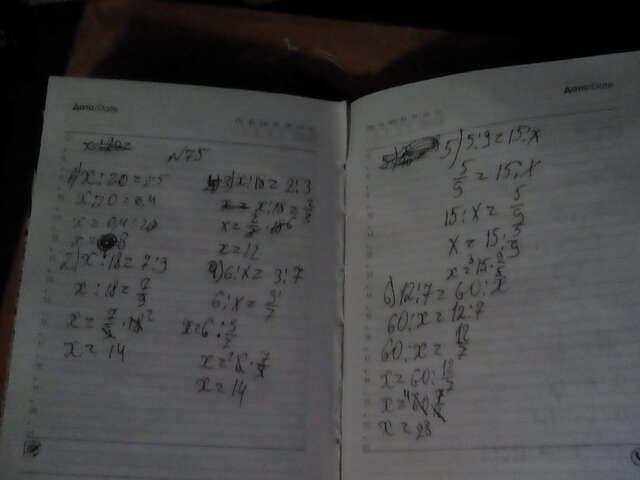 Дата/Date
№75
x:20=2:5
x:20=0,4
x=0,4·20
2) x:18=7:9
x:18=7/9
x=7/9·18 2
x=14
3) x:18=2:3
x:18=2/3
x=2/3·18 6
x=12
4) 6:x=3:7
6:x=3/7
x=6:3/7
x=14
Дата/Date
5) 5:9=15:x
5/9=15:x
15:x=5/9
x=15:5/9
6) 12:7=60:x
60:x=12:7
60:x=12/7
x=60:12/7
x=28